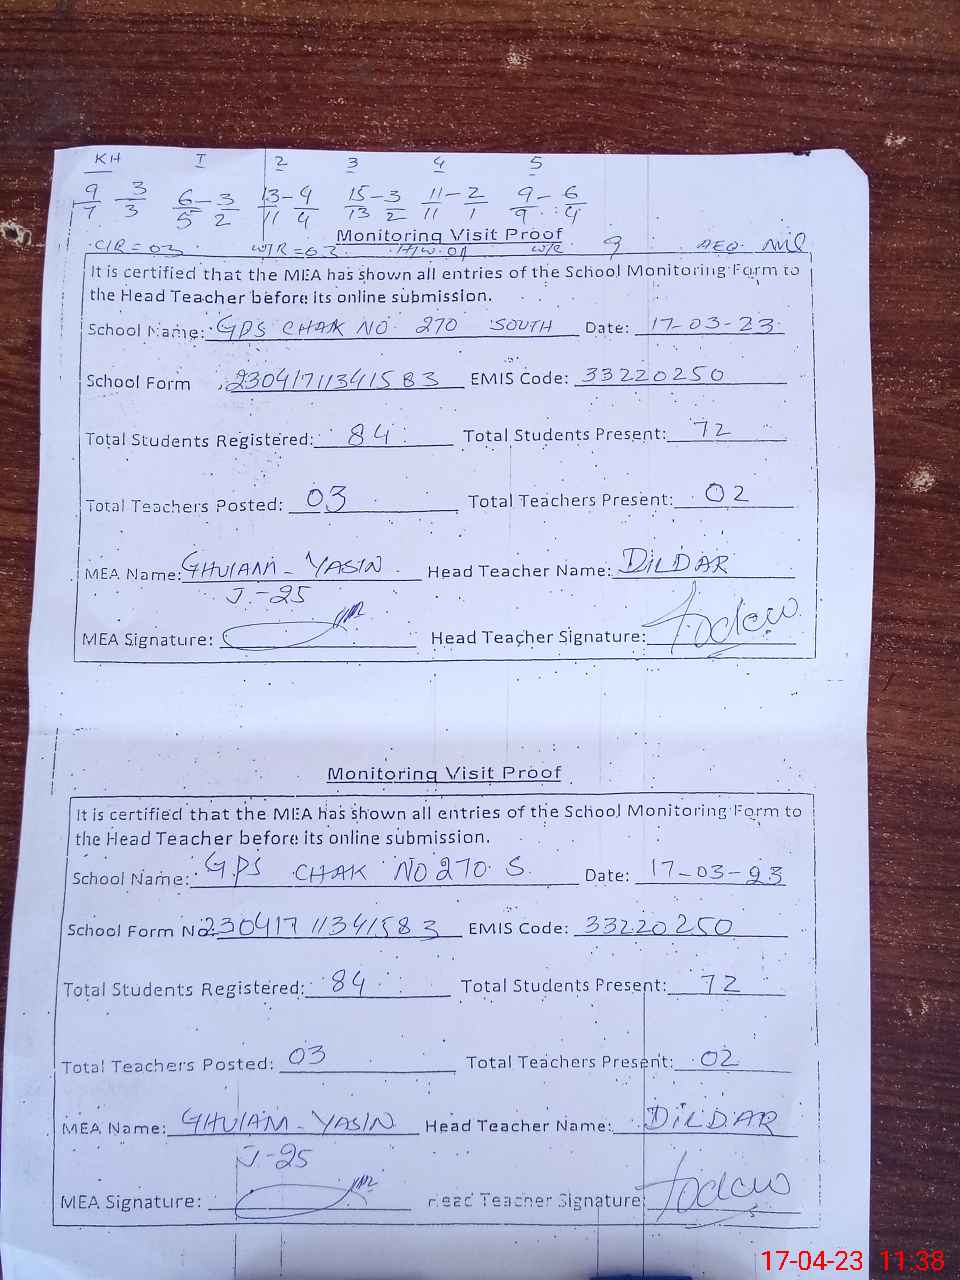 KH I 2 3 4 5
9 3 6-3 13-4 15-3 11-2 9-6
7 3 5 2 11 4 13 2 11 1 9 4
Monitoring Visit Proof
C/R=03 W/R=03 W/R 9 AEO
It is certified that the MEA has shown all entries of the School Monitoring Form to
the Head Teacher before its online submission.
School Name: GPS CHAK NO. 270 SOUTH Date: 17-03-23
School Form 23041711341583 EMIS Code: 33220250
Total Students Registered: 84 Total Students Present: 72
Total Teachers Posted: 03 Total Teachers Present: 02
MEA Name: GHULAM-YASIN Head Teacher Name: DILDAR
J-25
MEA Signature: Head Teacher Signature:
Monitoring Visit Proof
It is certified that the MEA has shown all entries of the School Monitoring Form to
the Head Teacher before its online submission.
School Name: GPS CHAK NO 270 S. Date: 17-03-23
School Form No. 23041711341583 EMIS Code: 33220250
Total Students Registered: 84 Total Students Present: 72
Total Teachers Posted: 03 Total Teachers Present: 02
MEA Name: GHULAM-YASIN Head Teacher Name: DILDAR
J-25
MEA Signature: Head Teacher Signature
17-04-23 11:38